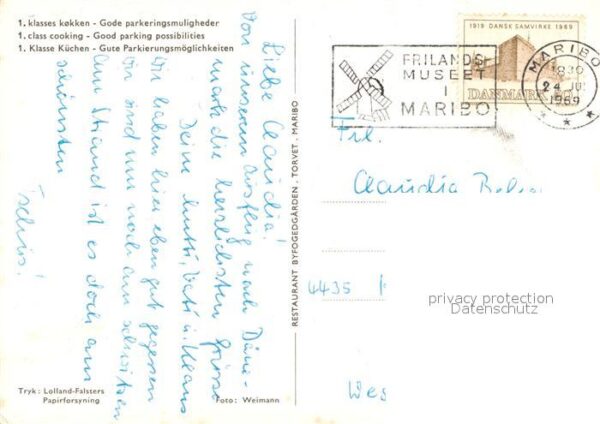 1. klasses køkken - Gode parkeringsmuligheder
1. class cooking - Good parking possibilities
1. Klasse Küchen - Gute Parkierungsmöglichkeiten
Liebe Claudia!
Von unserem Ausflug nach Däne-
mark die herzlichsten Grüsse
Deine Mutti, Vati u. Klaus
Wir haben hier eben gut gegessen
wir sind nun noch am schwitzen
Am Strand ist es doch am
schönsten
Tschüs!
Tryk: Lolland-Falsters
Papirforsyning
Foto: Weimann
RESTAURANT BYFOGEDGÅRDEN . TORVET . MARIBO
FRILANDS
MUSEET
I
MARIBO
1919 DANSK SAMVIRKE 1969
DANMARK
MARIBO
1969
Frl.
Claudia
4435
privacy protection
Datenschutz
Wes